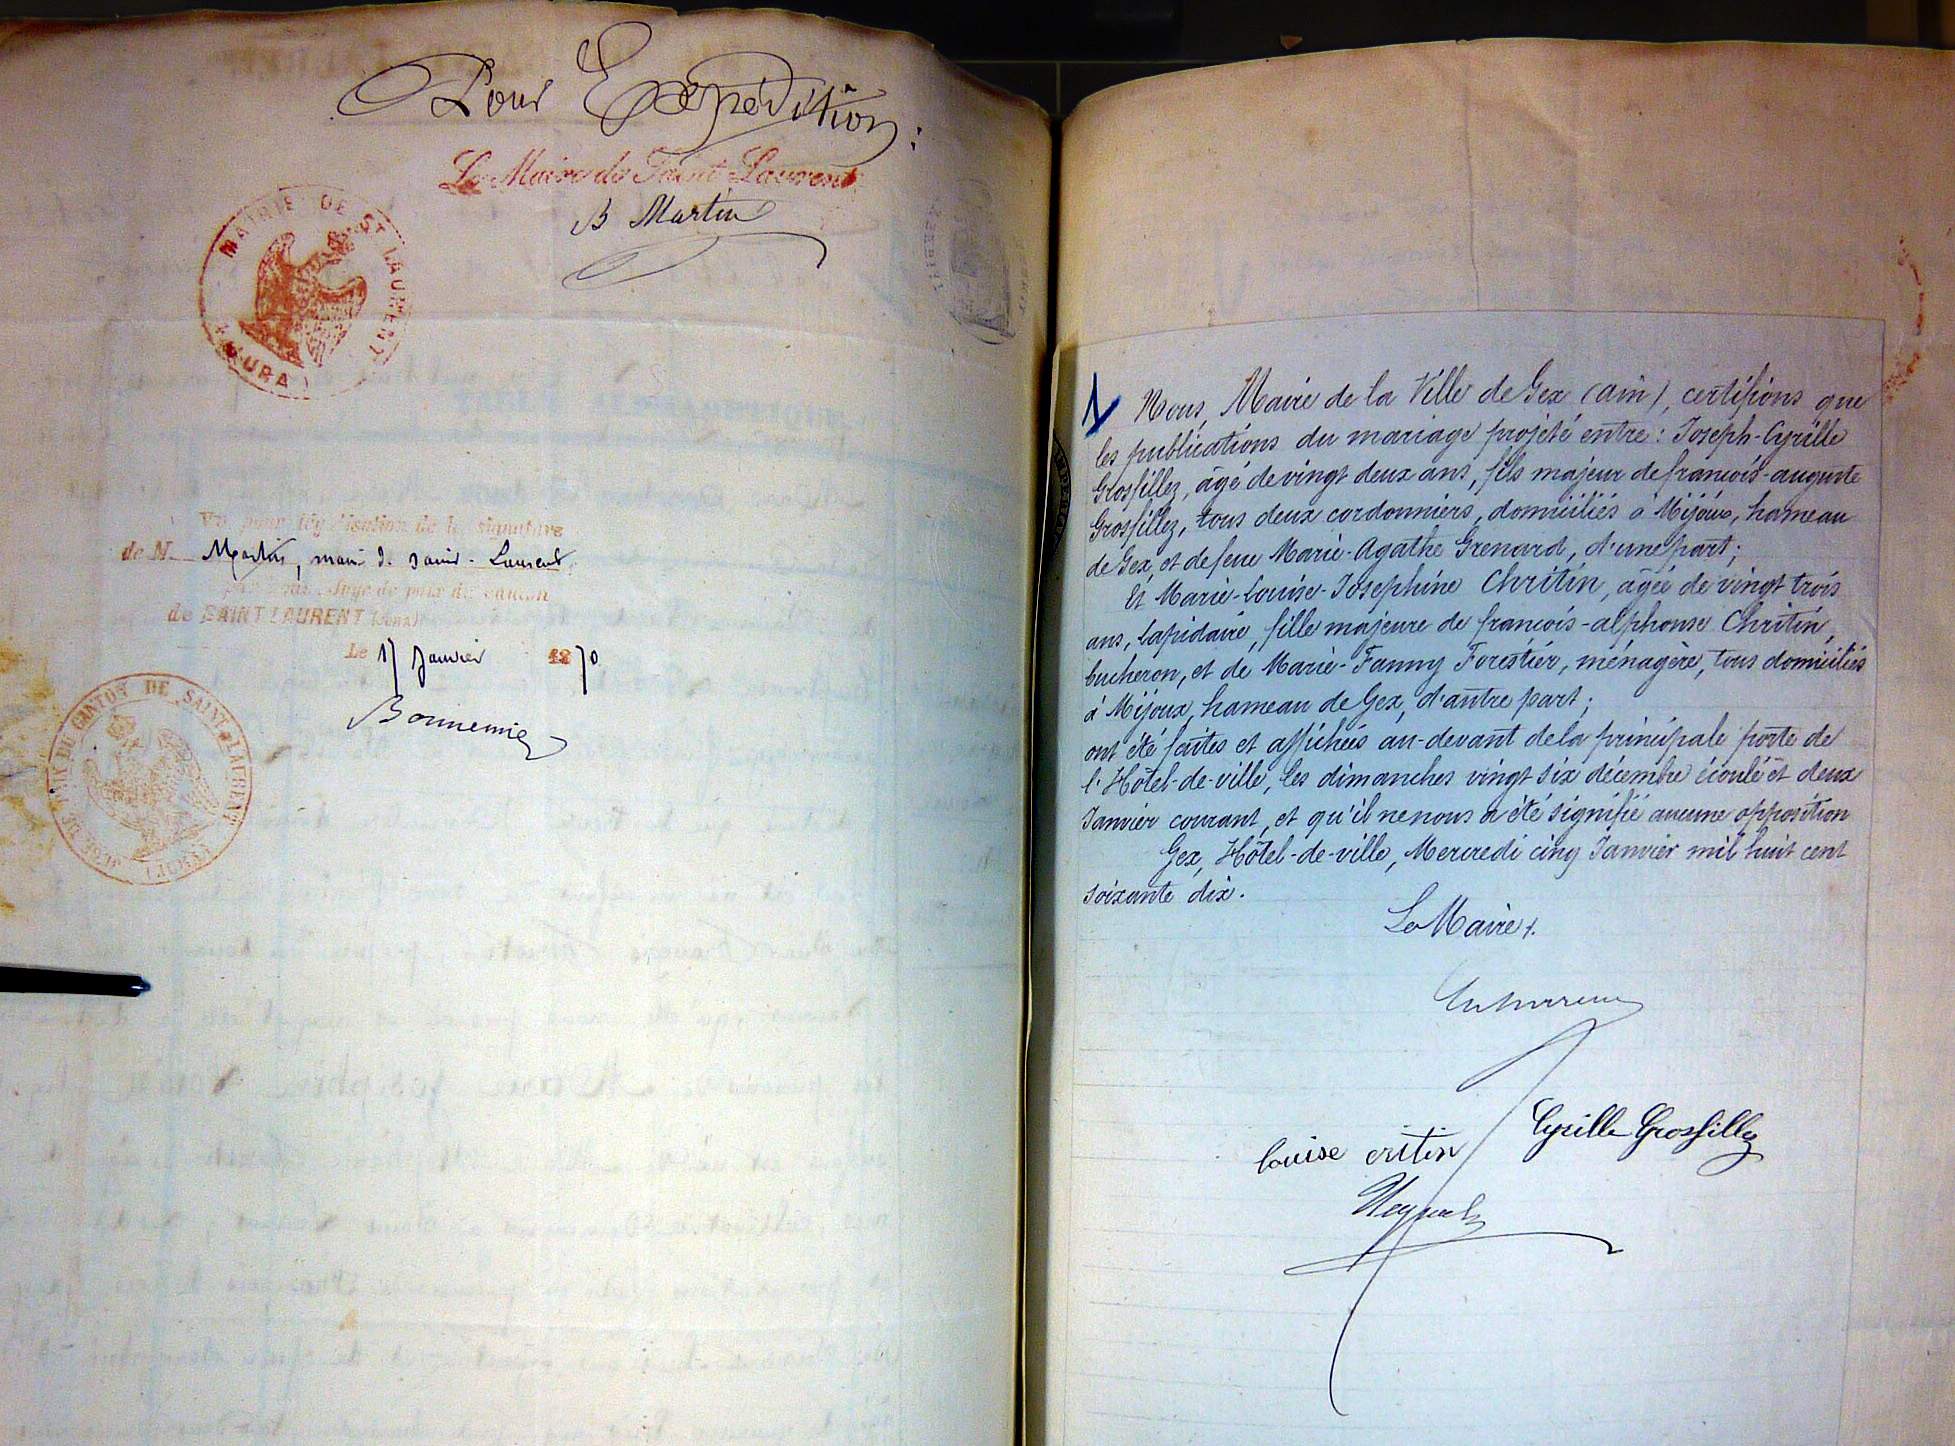 Pour Expédition :
Le Maire de Saint Laurent
B Martin
MAIRIE DE ST LAURENT
(JURA)
TIMBRE
Vu pour légalisation de la signature
de M. Martin, maire de Saint-Laurent,
Juge de paix du canton
de SAINT LAURENT (JURA)
Le 17 Janvier 1870
Bonnemie
JUGE DE PAIX DU CANTON DE SAINT-LAURENT
(JURA)
1
Nous, Maire de la Ville de Gex (ain), certifions que
les publications du mariage projeté entre : Joseph-Cyrille
Grosfillez, âgé de vingt deux ans, fils majeur de françois-auguste
Grosfillez, tous deux cordonniers, domiciliés à Mijoux, hameau
de Gex, et de feue Marie-Agathe Grenard, d'une part ;
Et Marie-Louise-Josephine Chritin, âgée de vingt trois
ans, lapidaire, fille majeure de françois-alphonse Chritin,
bucheron, et de Marie-Fanny Forestier, ménagère, tous domiciliés
à Mijoux, hameau de Gex, d'autre part ;
ont été faites et affichées au-devant de la principale porte de
l'Hôtel-de-ville, les dimanches vingt six décembre écoulé et deux
Janvier courant, et qu'il ne nous a été signifié aucune opposition
Gex, Hôtel-de-ville, Mercredi cinq Janvier mil huit cent
soixante dix.
Le Maire
Cyrille Grosfillez
louise critin